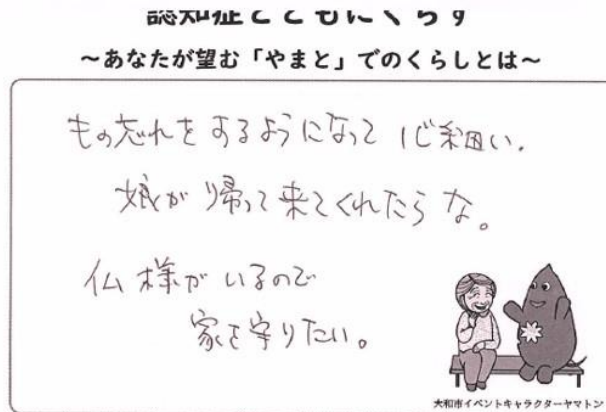 認知症とともにくらす
～あなたが望む「やまと」でのくらしとは～
もの忘れをするようになって心細い.
娘が帰って来てくれたらな。
仏様がいるので
家を守りたい。
大和市イベントキャラクターヤマトン